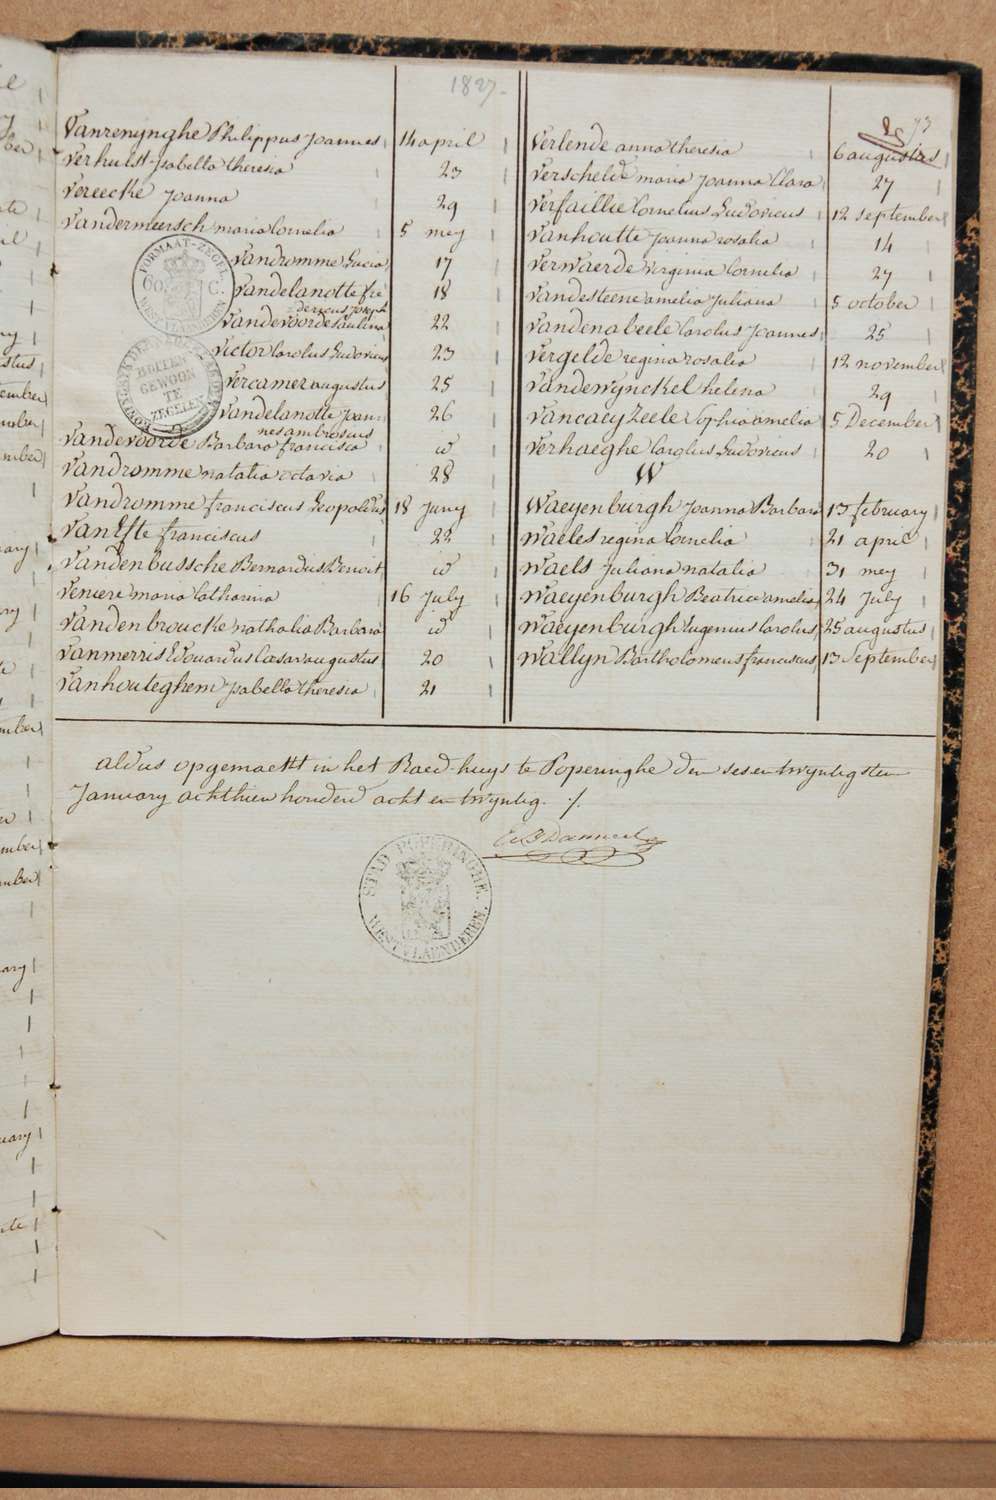 1827.
73
Vanrenynghe Philippus Joannes 14 april
Verhulst Isabella theresia 23
Vereecke Joanna 29
Vandermeersch maria Cornelia 5 mey
Vandromme Lucia 17
Vandelanotte fre 18
dericus Joseph
Vandevoorde Paulina 22
Victor Carolus Ludovicus 23
Vercamer augustus 25
Vandelanotte Joan 26
nes ambrosius
Vandevoorde Barbara francisca id
Vandromme natalia octavia 28
Vandromme franciscus Leopoldus 18 Juny
Vanelste franciscus 22
Vandenbussche Bernardus Benoit id
Veniere maria Catharina 16 July
Vandenbroucke nathalia Barbara id
Vanmerris Edouardus Cæsar augustus 20
Vanhouteghem Isabella theresia 21
Verlende anna theresia 6 augustus
Verschelde maria Joanna Clara 27
Verfaillie Cornelius Ludovicus 12 september
Vanhoutte Joanna rosalia 14
Verwaerde virginia Cornelia 27
Vandesteene amelia Juliana 5 october
Vandenabeele Carolus Joannes 25
Vergelde regina rosalia 12 november
Vandewynckel helena 29
Vancaeyzeele Sophia amelia 5 December
Verhaeghe Carolus Ludovicus 20
W
Waeyenburgh Joanna Barbara 13 february
Waeles regina Cornelia 21 april
Waels Juliana natalia 31 mey
Waeyenburgh Beatrice amelia 24 July
Waeyenburgh Eugenius Carolus 25 augustus
Wallyn Bartholomeus franciscus 13 September
FORMAAT-ZEGEL
60. C.
WEST-VLAENDEREN
BUITEN
GEWOON
TE
ZEGELEN
aldus opgemaekt in het Raed-huys te Poperinghe den ses en twyntigsten
January achthien honderd acht en twyntig. ./.
STAD POPERINGHE.
WEST VLAENDEREN.